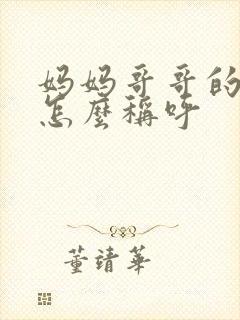 妈妈哥哥的
怎麼稱呼
董靖華